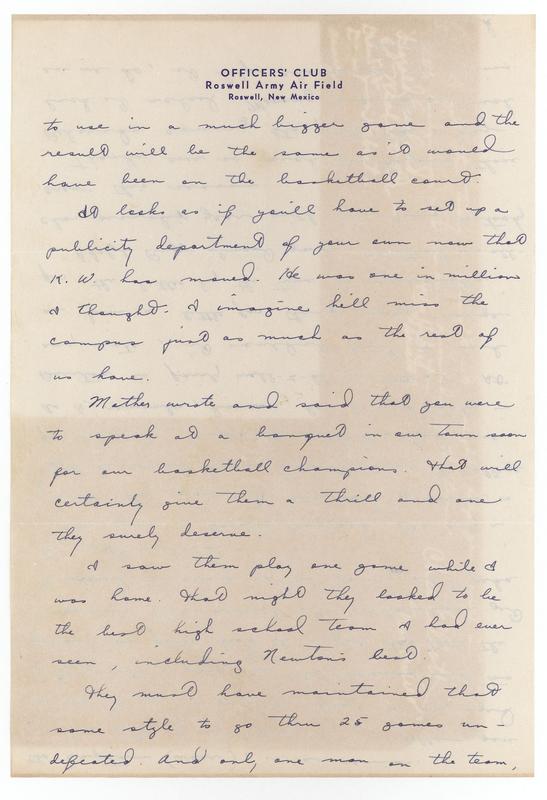 OFFICERS' CLUB
Roswell Army Air Field
Roswell, New Mexico
to use in a much bigger game and the
result will be the same as it would
have been on the basketball court.
It looks as if you'll have to set up a
publicity department of your own now that
K. W. has moved. He was one in million
I thought. I imagine he'll miss the
campus just as much as the rest of
us have.
Mother wrote and said that you were
to speak at a banquet in our town soon
for our basketball champions. That will
certainly give them a thrill and one
they surely deserve.
I saw them play one game while I
was home. That night they looked to be
the best high school team I had ever
seen, including Newton's best.
They must have maintained that
same style to go thru 25 games un-
defeated. And only one man on the team,